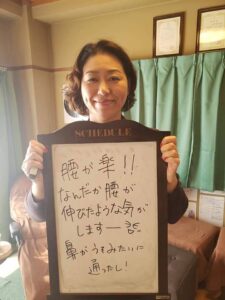 SCHEDULE
腰が楽!!
なんだか腰が
伸びたような気が
しますー
鼻がうそみたいに
通ったし!